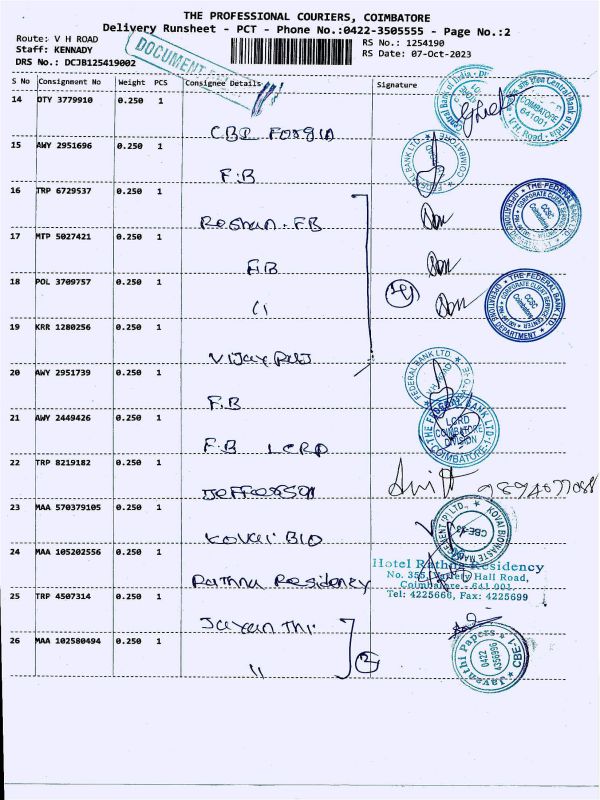 THE PROFESSIONAL COURIERS, COIMBATORE
Delivery Runsheet - PCT - Phone No.:0422-3505555 - Page No.:2
Route: V H ROAD
Staff: KENNADY
DRS No.: DCJB125419002
RS No.: 1254190
RS Date: 07-Oct-2023
DOCUMENT
S No Consignment No Weight PCS Consignee Details Signature
14 OTY 3779910 0.250 1
CBI
15 AWY 2951696 0.250 1
F.B
16 TRP 6729537 0.250 1
Roshan. FB
17 MTP 5027421 0.250 1
F.B
18 POL 3709757 0.250 1
"
19 KRR 1280256 0.250 1
Vijay
20 AWY 2951739 0.250 1
F.B
21 AWY 2449426 0.250 1
F.B LCRD
22 TRP 8219182 0.250 1
Jefferson
23 MAA 570379105 0.250 1
Kovai BIO
24 MAA 105202556 0.250 1
Rathna Residency
25 TRP 4507314 0.250 1
Jayanthi
26 MAA 102580494 0.250 1
"
COIMBATORE
641001
V.H. Road
FEDERAL BANK LTD.
THE FEDERAL BANK LTD.
CORPORATE CLIENT SERVICE CENTER
CCSC
Coimbatore
OPERATIONS DEPARTMENT
THE FEDERAL BANK LTD.
CORPORATE CLIENT SERVICE CENTER
CCSC
Coimbatore
OPERATIONS DEPARTMENT
FEDERAL BANK LTD.
V H ROAD
THE FEDERAL BANK LTD
LCRD
COIMBATORE
DIVISION
COIMBATORE
KOVAI BIOWASTE MANAGEMENT (P) LTD.,
CBE-43
Hotel Rathna Residency
No. 355, Variety Hall Road,
Coimbatore - 641 001.
Tel: 4225666, Fax: 4225699
Jayanthi Papers
0422
4356996
CBE-1